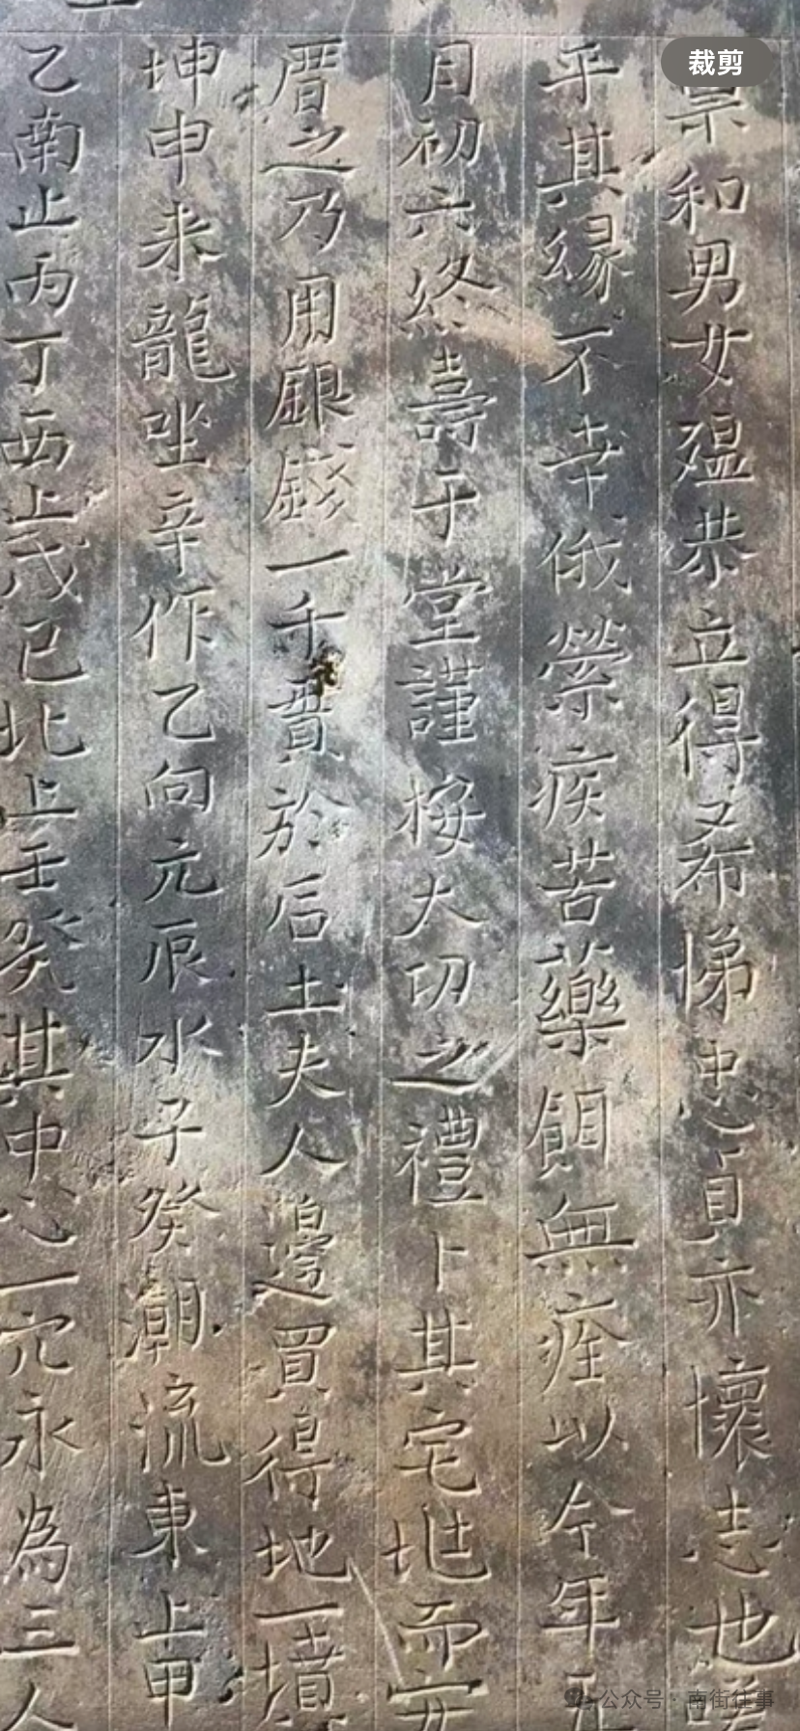 裁剪
和男女殟恭立得希悌忠貞亦懷志也
乎其緣不幸俄縈疾苦藥餌無痊以今年五
月初六終壽于堂謹按大切之禮卜其宅地而安
厝之乃用銀錢一千貫於后土夫人邊買得地一墳
坤申来龍坐辛作乙向元辰水子癸潮流東上甲
乙南止丙丁西上戊已北上壬癸其中心一穴永為三人
公众号·南街往事